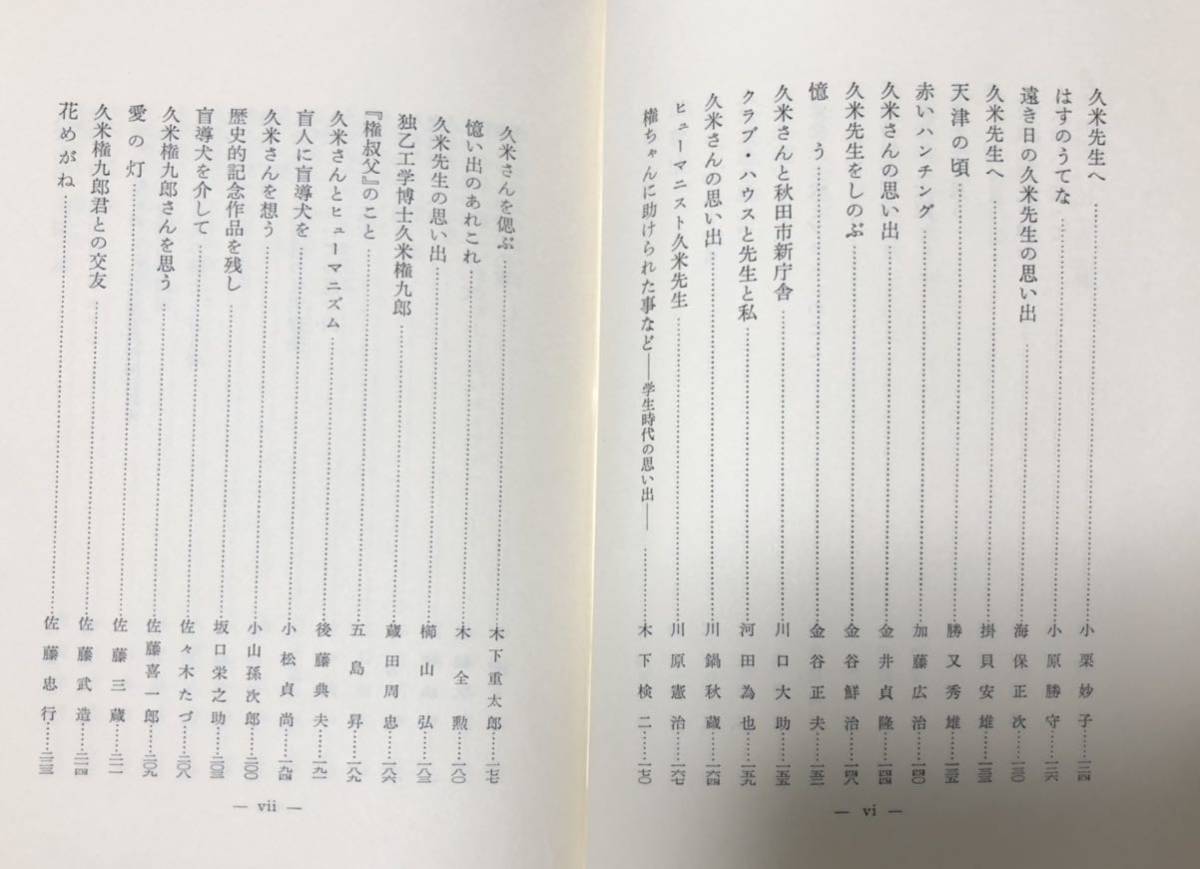 久米先生へ……小栗妙子……一二四
はすのうてな……小原勝守……一二六
遠き日の久米先生の思い出……海保正次……一三〇
久米先生へ……掛貝安雄……一三三
天津の頃……勝又秀雄……一三五
赤いハンチング……加藤広治……一四〇
久米さんの思い出……金井貞隆……一四四
久米先生をしのぶ……金谷鮮治……一四八
憶う……金谷正夫……一五二
久米さんと秋田市新庁舎……川口大助……一五五
クラブ・ハウスと先生と私……河田為也……一五九
久米さんの思い出……川鍋秋蔵……一六四
ヒューマニスト久米先生……川原憲治……一六七
権ちゃんに助けられた事など――学生時代の思い出――……木下検二……一七〇
― vi ―
久米さんを偲ぶ……木下重太郎……一七七
憶い出のあれこれ……木全勲……一八〇
久米先生の思い出……櫛山弘……一八三
独乙工学博士久米権九郎……蔵田周忠……一八六
『権叔父』のこと……五島昇……一八九
久米さんとヒューマニズム……後藤典夫……一九一
盲人に盲導犬を……小松貞尚……一九四
久米さんを想う……小山孫次郎……二〇〇
歴史的記念作品を残し……坂口栄之助……二〇三
盲導犬を介して……佐々木たづ……二〇八
久米権九郎さんを思う……佐藤喜一郎……二〇九
愛の灯……佐藤三蔵……二一一
久米権九郎君との交友……佐藤武造……二一四
花めがね……佐藤忠行……二二三
― vii ―